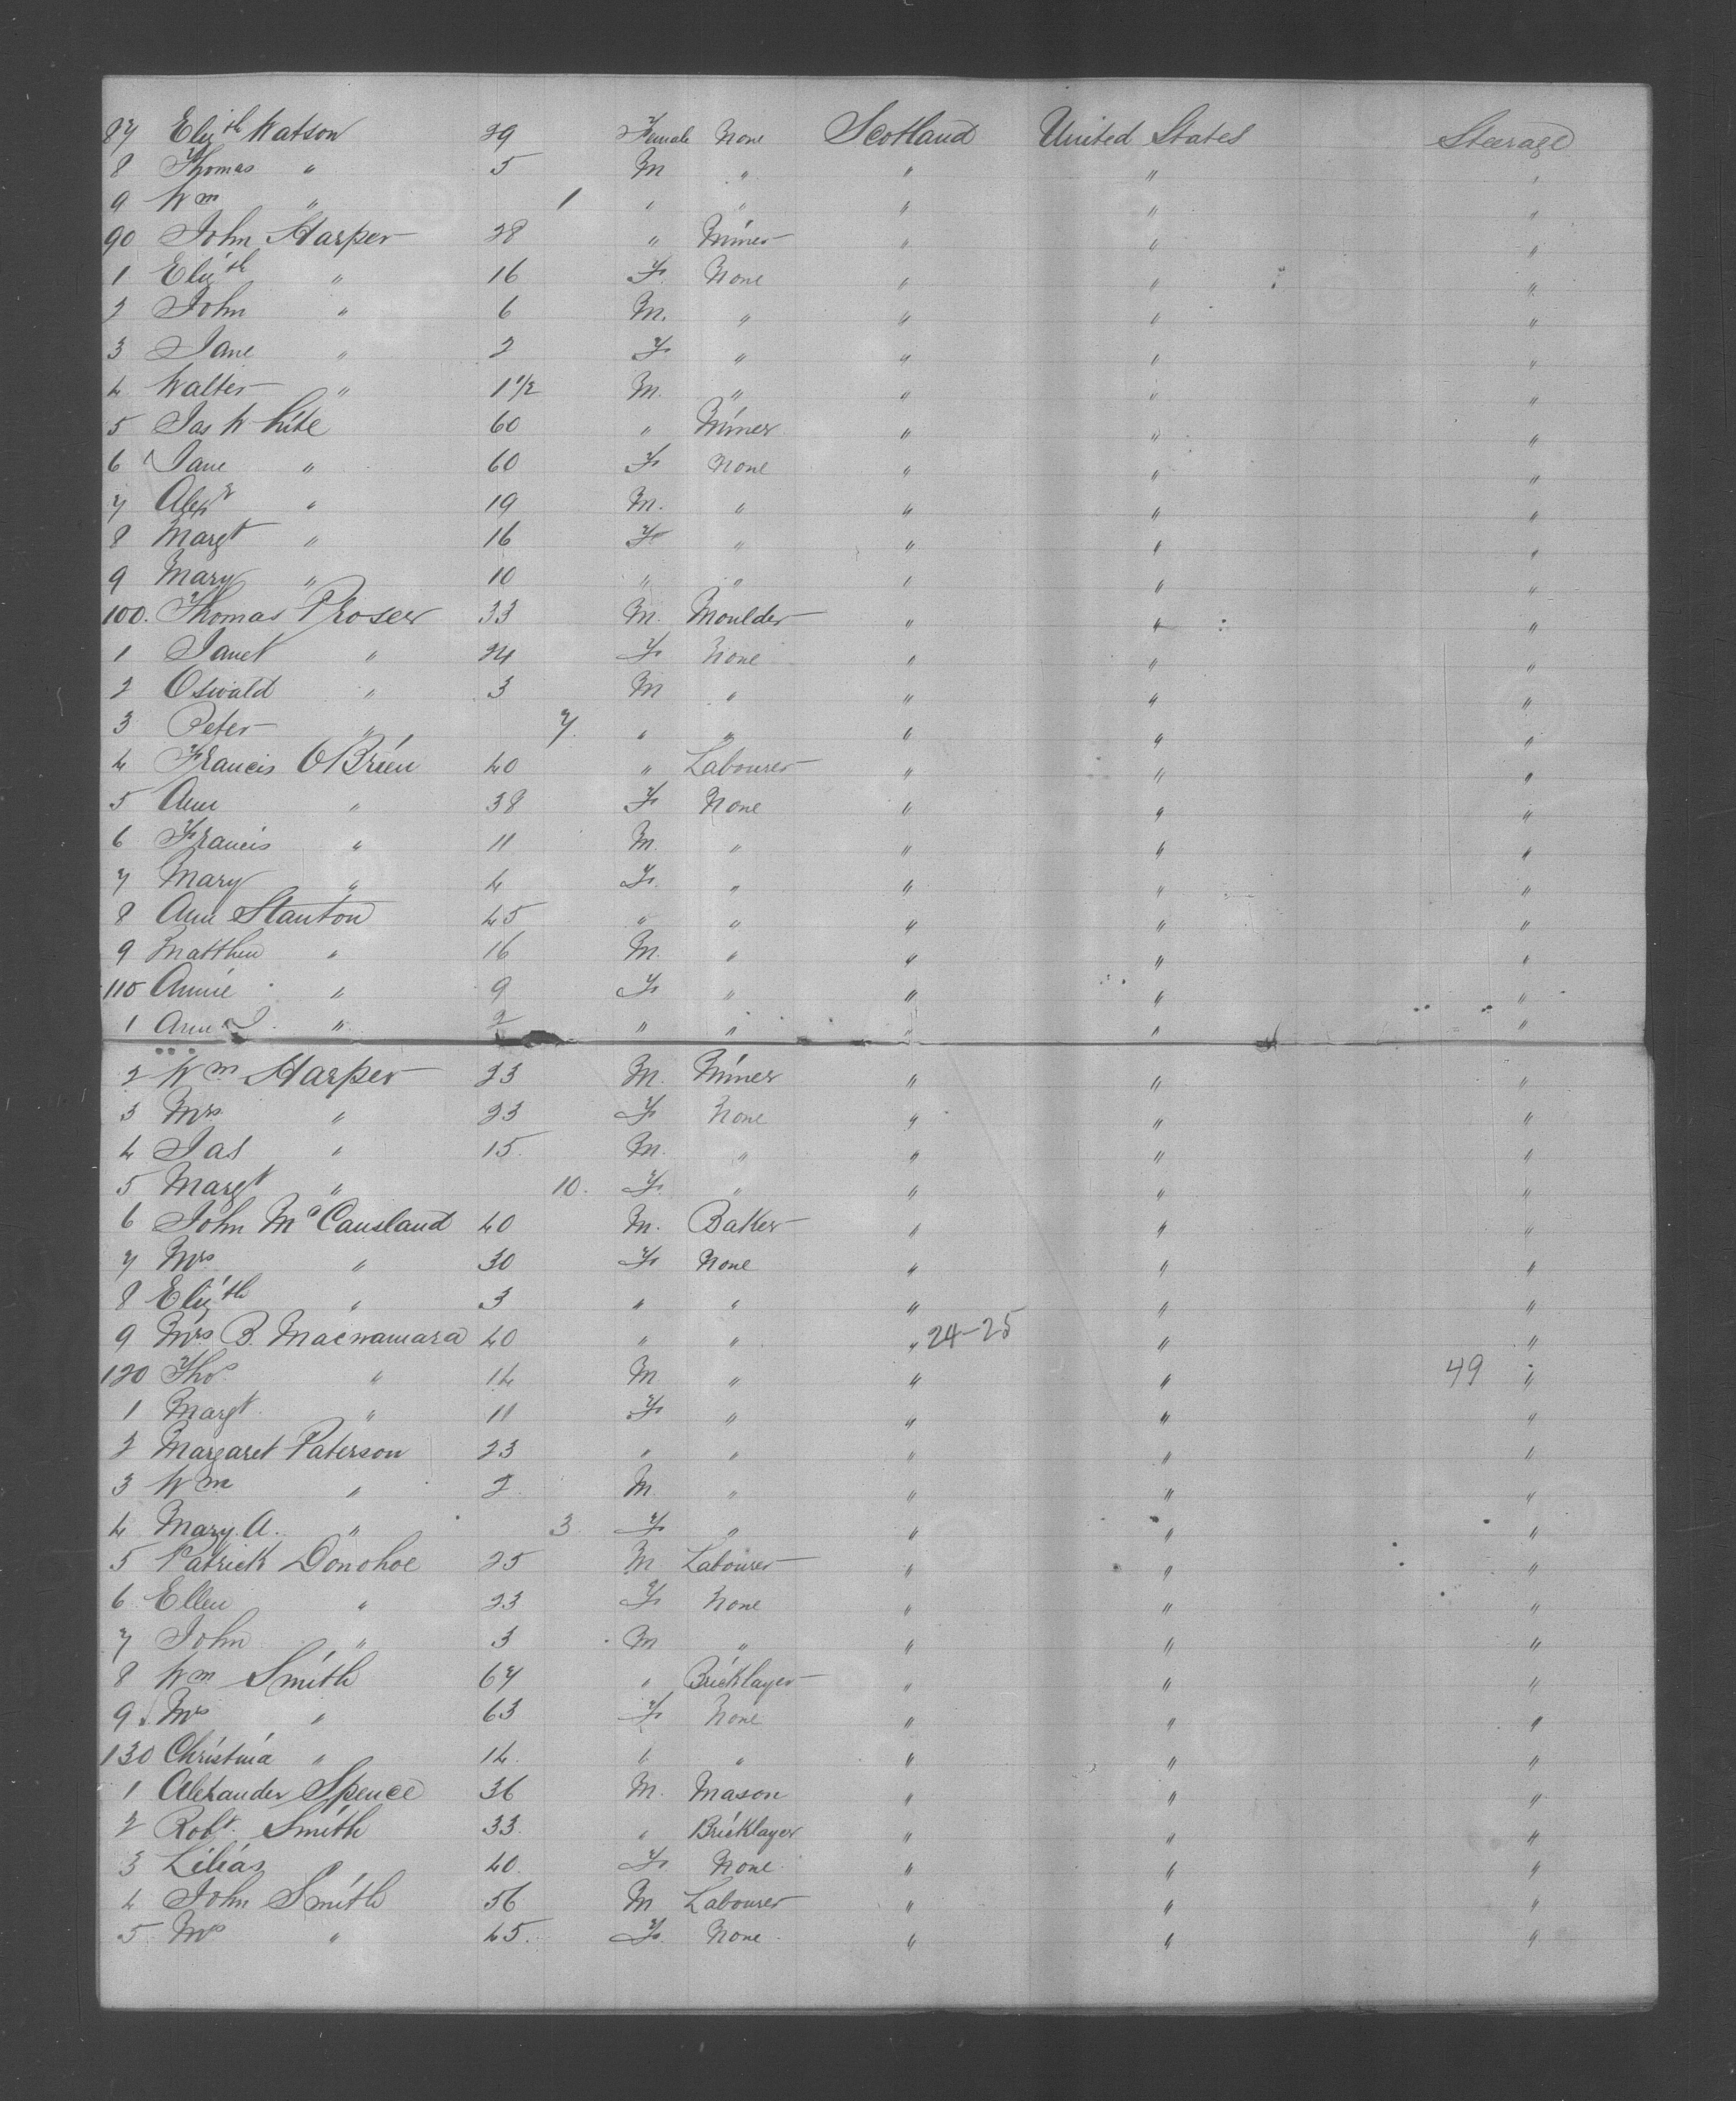 87 Elizth Watson 29 Female None Scotland United States Steerage
8 Thomas " 5 M " " " "
9 Wm " 1 " " " " "
90 John Harper 28 " Miner " " "
1 Elizth " 16 F. None " " "
2 John " 6 M. " " " "
3 Jane " 2 F " " " "
4 Walter " 1 1/2 M. " " " "
5 Jas White 60 " Miner " " "
6 Jane " 60 F None " " "
7 Alexr " 19 M. " " " "
8 Margt " 16 F " " " "
9 Mary " 10 " " " " "
100. Thomas Proser 33 M. Moulder " " "
1 Janet " 24 F None " " "
2 Oswald " 3 M " " " "
3 Peter " 7. " " " " "
4 Francis OBrien 40 " Labourer " " "
5 Ann " 38 F None " " "
6 Francis " 11 M. " " " "
7 Mary " 4 F. " " " "
8 Ann Stanton 45 " " " " "
9 Matthew " 16 M. " " " "
110 Annie " 9 F " " " "
1 Ann J. " 2 " " " " "
2 Wm Harper 23 M. Miner " " "
3 Mrs " 23 F None " " "
4 Jas " 15. M. " " " "
5 Margt " 10. F. " " " "
6 John Mc Causland 40 M. Baker " " "
7 Mrs " 30 F None " " "
8 Elizth " 3 " " " " "
9 Mrs B. Macnamara 40 " " " 24-25 " "
120 Thos " 14 M " " " 49 "
1 Margt. " 11 F " " " "
2 Margaret Paterson 23 " " " " "
3 Wm " 2. M. " " " "
4 Mary. A. " 3. F " " " "
5 Patrick Donohoe 25 M. Labourer " " "
6 Ellen " 23 F None " " "
7 John " 3 M " " " "
8 Wm Smith 67 " Bricklayer " " "
9 Mrs " 63 F None " " "
130 Christina " 14. " " " " "
1 Alexander Spence 36 M. Mason " " "
2 Robt. Smith 33. " Bricklayer " " "
3 Lilias 40. F None " " "
4 John Smith 56 M Labourer " " "
5 Mrs " 45. F. None " " "